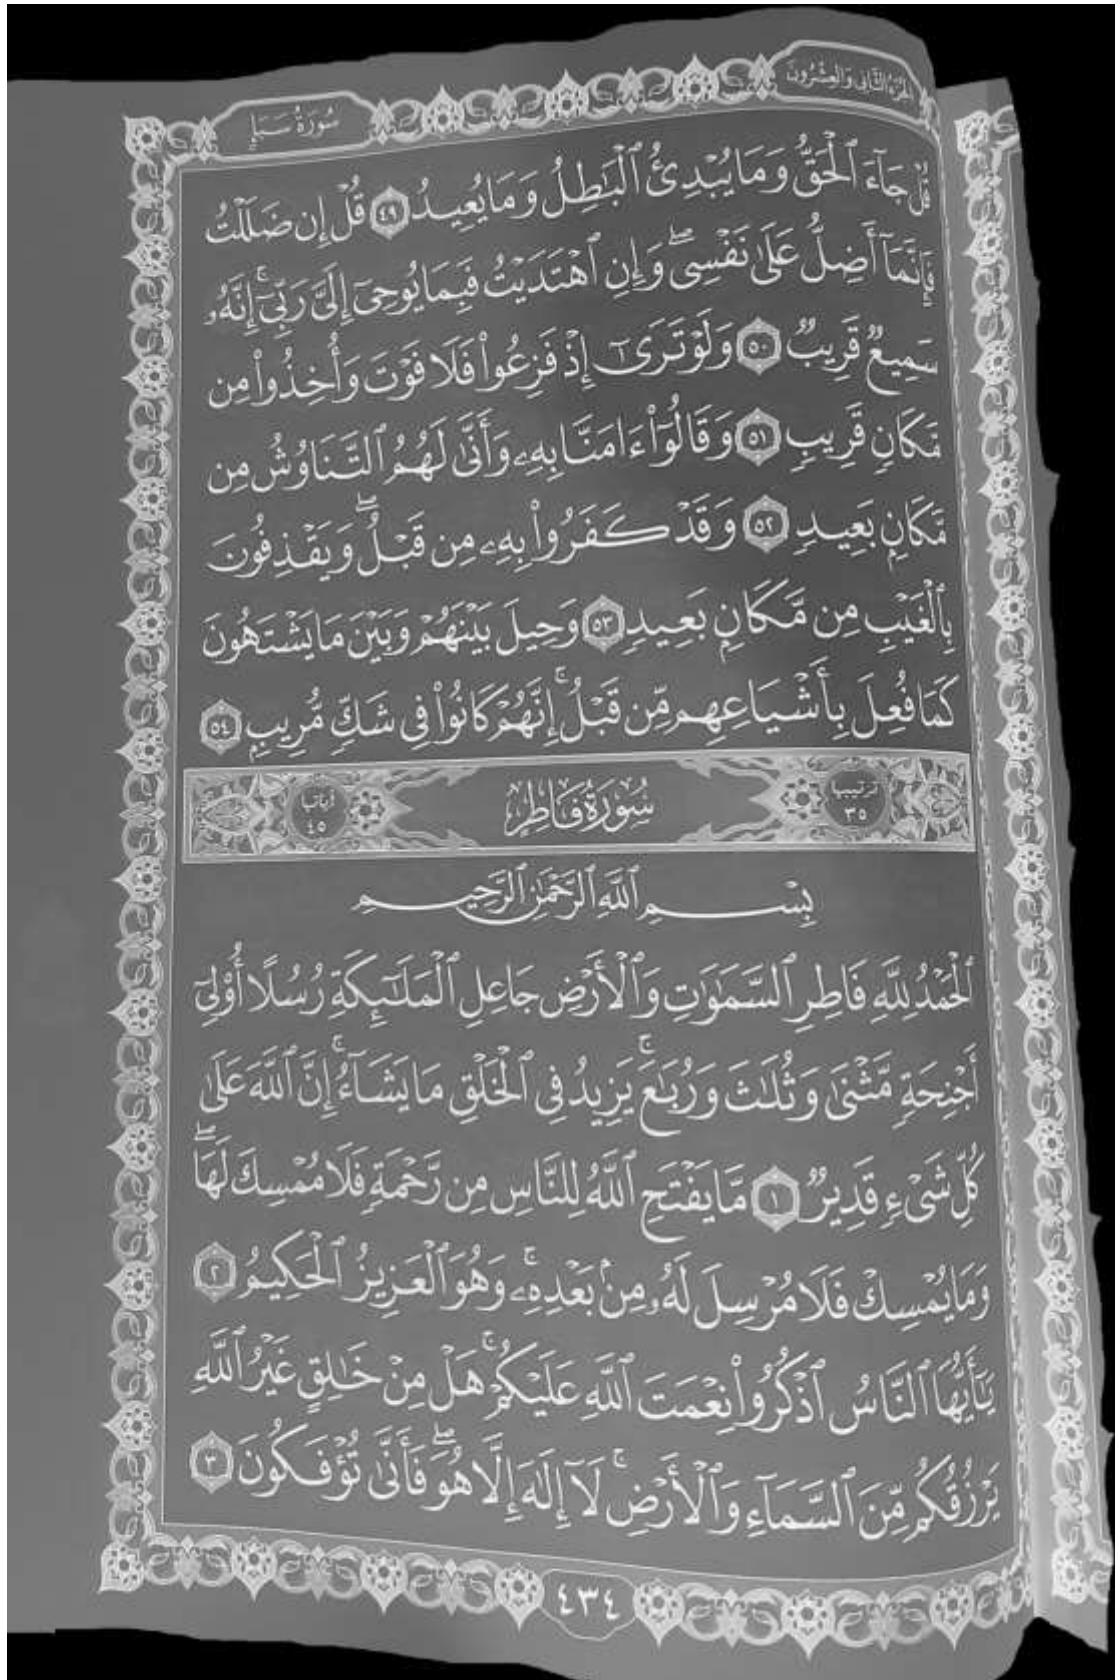 الجزء الثاني والعشرون
سورة سبإ
قُلْ جَآءَ ٱلْحَقُّ وَمَا يُبْدِئُ ٱلْبَٰطِلُ وَمَا يُعِيدُ ٤٩ قُلْ إِن ضَلَلْتُ
فَإِنَّمَآ أَضِلُّ عَلَىٰ نَفْسِى ۖ وَإِنِ ٱهْتَدَيْتُ فَبِمَا يُوحِىٓ إِلَىَّ رَبِّىٓ ۚ إِنَّهُۥ
سَمِيعٌ قَرِيبٌ ٥٠ وَلَوْ تَرَىٰٓ إِذْ فَزِعُوا۟ فَلَا فَوْتَ وَأُخِذُوا۟ مِن
مَّكَانٍ قَرِيبٍ ٥١ وَقَالُوٓا۟ ءَامَنَّا بِهِۦ وَأَنَّىٰ لَهُمُ ٱلتَّنَاوُشُ مِن
مَّكَانٍۭ بَعِيدٍ ٥٢ وَقَدْ كَفَرُوا۟ بِهِۦ مِن قَبْلُ ۖ وَيَقْذِفُونَ
بِٱلْغَيْبِ مِن مَّكَانٍۭ بَعِيدٍ ٥٣ وَحِيلَ بَيْنَهُمْ وَبَيْنَ مَا يَشْتَهُونَ
كَمَا فُعِلَ بِأَشْيَاعِهِم مِّن قَبْلُ ۚ إِنَّهُمْ كَانُوا۟ فِى شَكٍّ مُّرِيبٍۭ ٥٤
ترتيبها ٣٥ سورة فاطر آياتها ٤٥
بِسْمِ ٱللَّهِ ٱلرَّحْمَٰنِ ٱلرَّحِيمِ
ٱلْحَمْدُ لِلَّهِ فَاطِرِ ٱلسَّمَٰوَٰتِ وَٱلْأَرْضِ جَاعِلِ ٱلْمَلَٰٓئِكَةِ رُسُلًا أُو۟لِىٓ
أَجْنِحَةٍ مَّثْنَىٰ وَثُلَٰثَ وَرُبَٰعَ ۚ يَزِيدُ فِى ٱلْخَلْقِ مَا يَشَآءُ ۚ إِنَّ ٱللَّهَ عَلَىٰ
كُلِّ شَىْءٍ قَدِيرٌ ١ مَّا يَفْتَحِ ٱللَّهُ لِلنَّاسِ مِن رَّحْمَةٍ فَلَا مُمْسِكَ لَهَا ۖ
وَمَا يُمْسِكْ فَلَا مُرْسِلَ لَهُۥ مِنۢ بَعْدِهِۦ ۚ وَهُوَ ٱلْعَزِيزُ ٱلْحَكِيمُ ٢
يَٰٓأَيُّهَا ٱلنَّاسُ ٱذْكُرُوا۟ نِعْمَتَ ٱللَّهِ عَلَيْكُمْ ۚ هَلْ مِنْ خَٰلِقٍ غَيْرُ ٱللَّهِ
يَرْزُقُكُم مِّنَ ٱلسَّمَآءِ وَٱلْأَرْضِ ۚ لَآ إِلَٰهَ إِلَّا هُوَ ۖ فَأَنَّىٰ تُؤْفَكُونَ ٣
٤٣٤